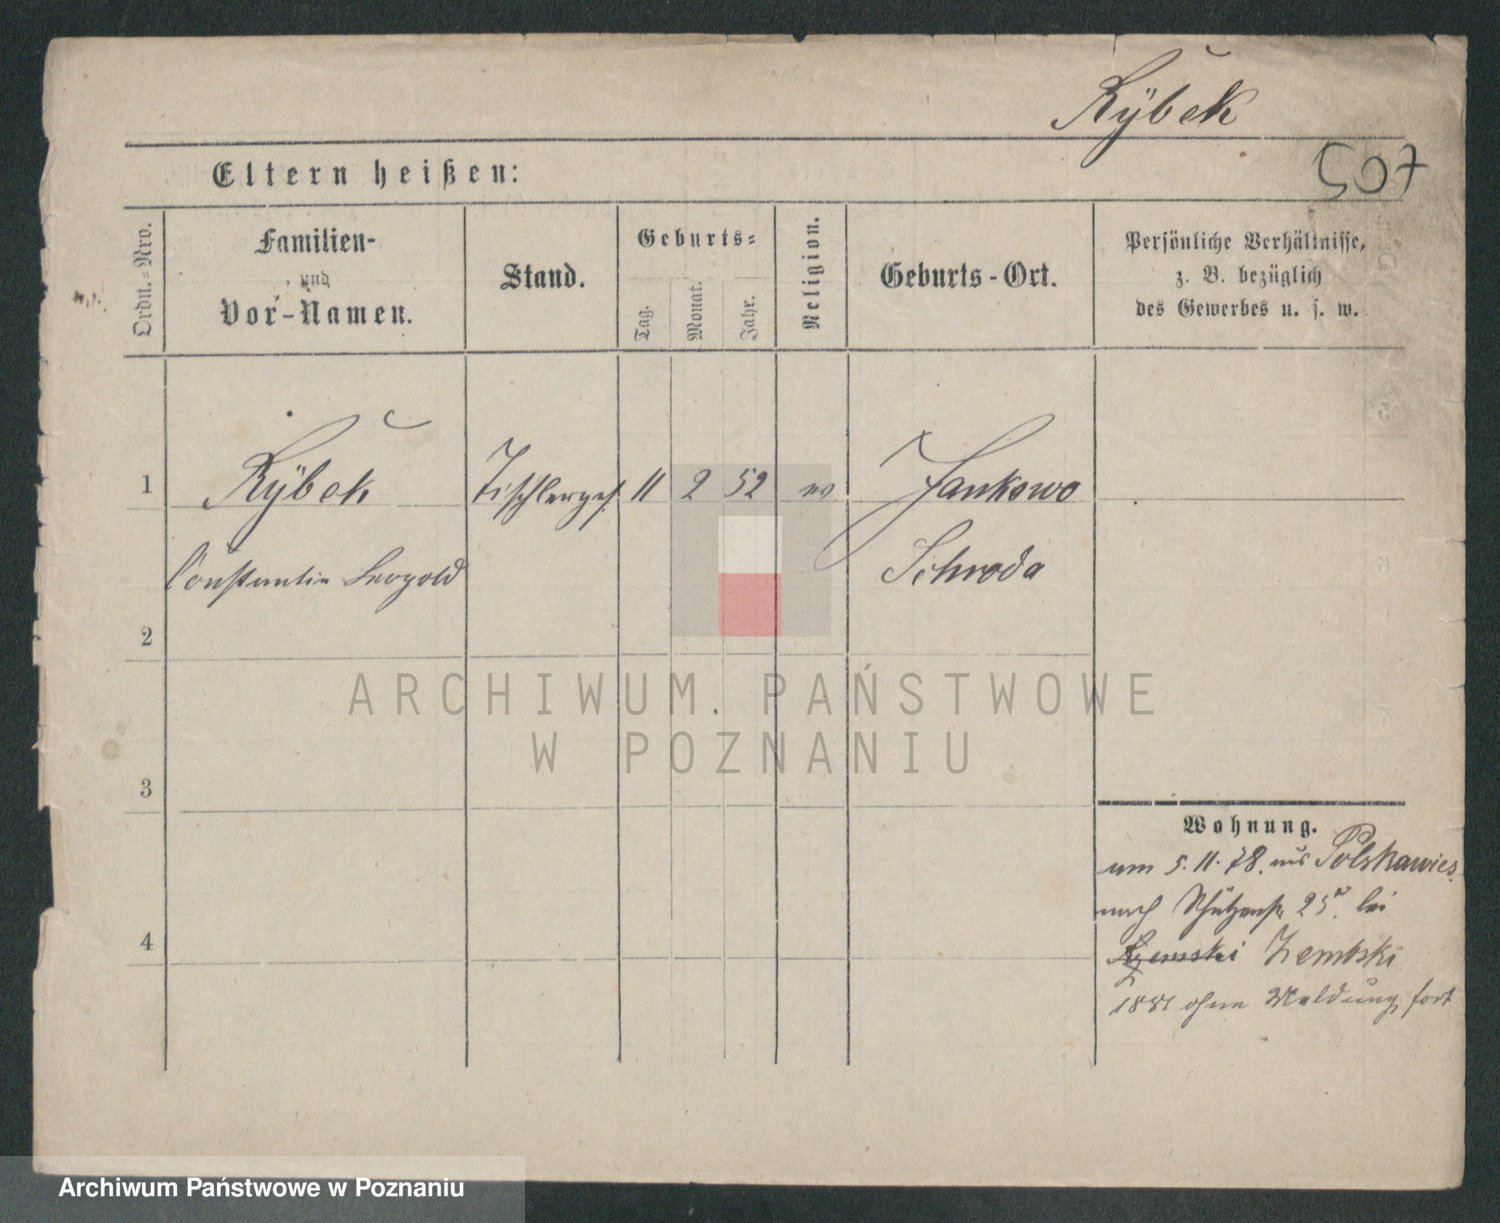 Rÿbek
507
Eltern heißen:
Ordn.-Nro.
Familien-
und
Vor-Namen.
Stand.
Geburts-
Tag.
Monat.
Jahr.
Religion.
Geburts-Ort.
Persönliche Verhältnisse,
z. B. bezüglich
des Gewerbes u. s. w.
1 Rÿbek Tischlerges. 11 2 52 ev Jankowo
Constantin Leopold Schroda
2
3
4
Wohnung.
um 5. 11. 78. aus Polskawies.
nach Schützenstr 25 bei
Zemski Zembski
1881 ohne Meldung fort
ARCHIWUM PAŃSTWOWE
W POZNANIU
Archiwum Państwowe w Poznaniu